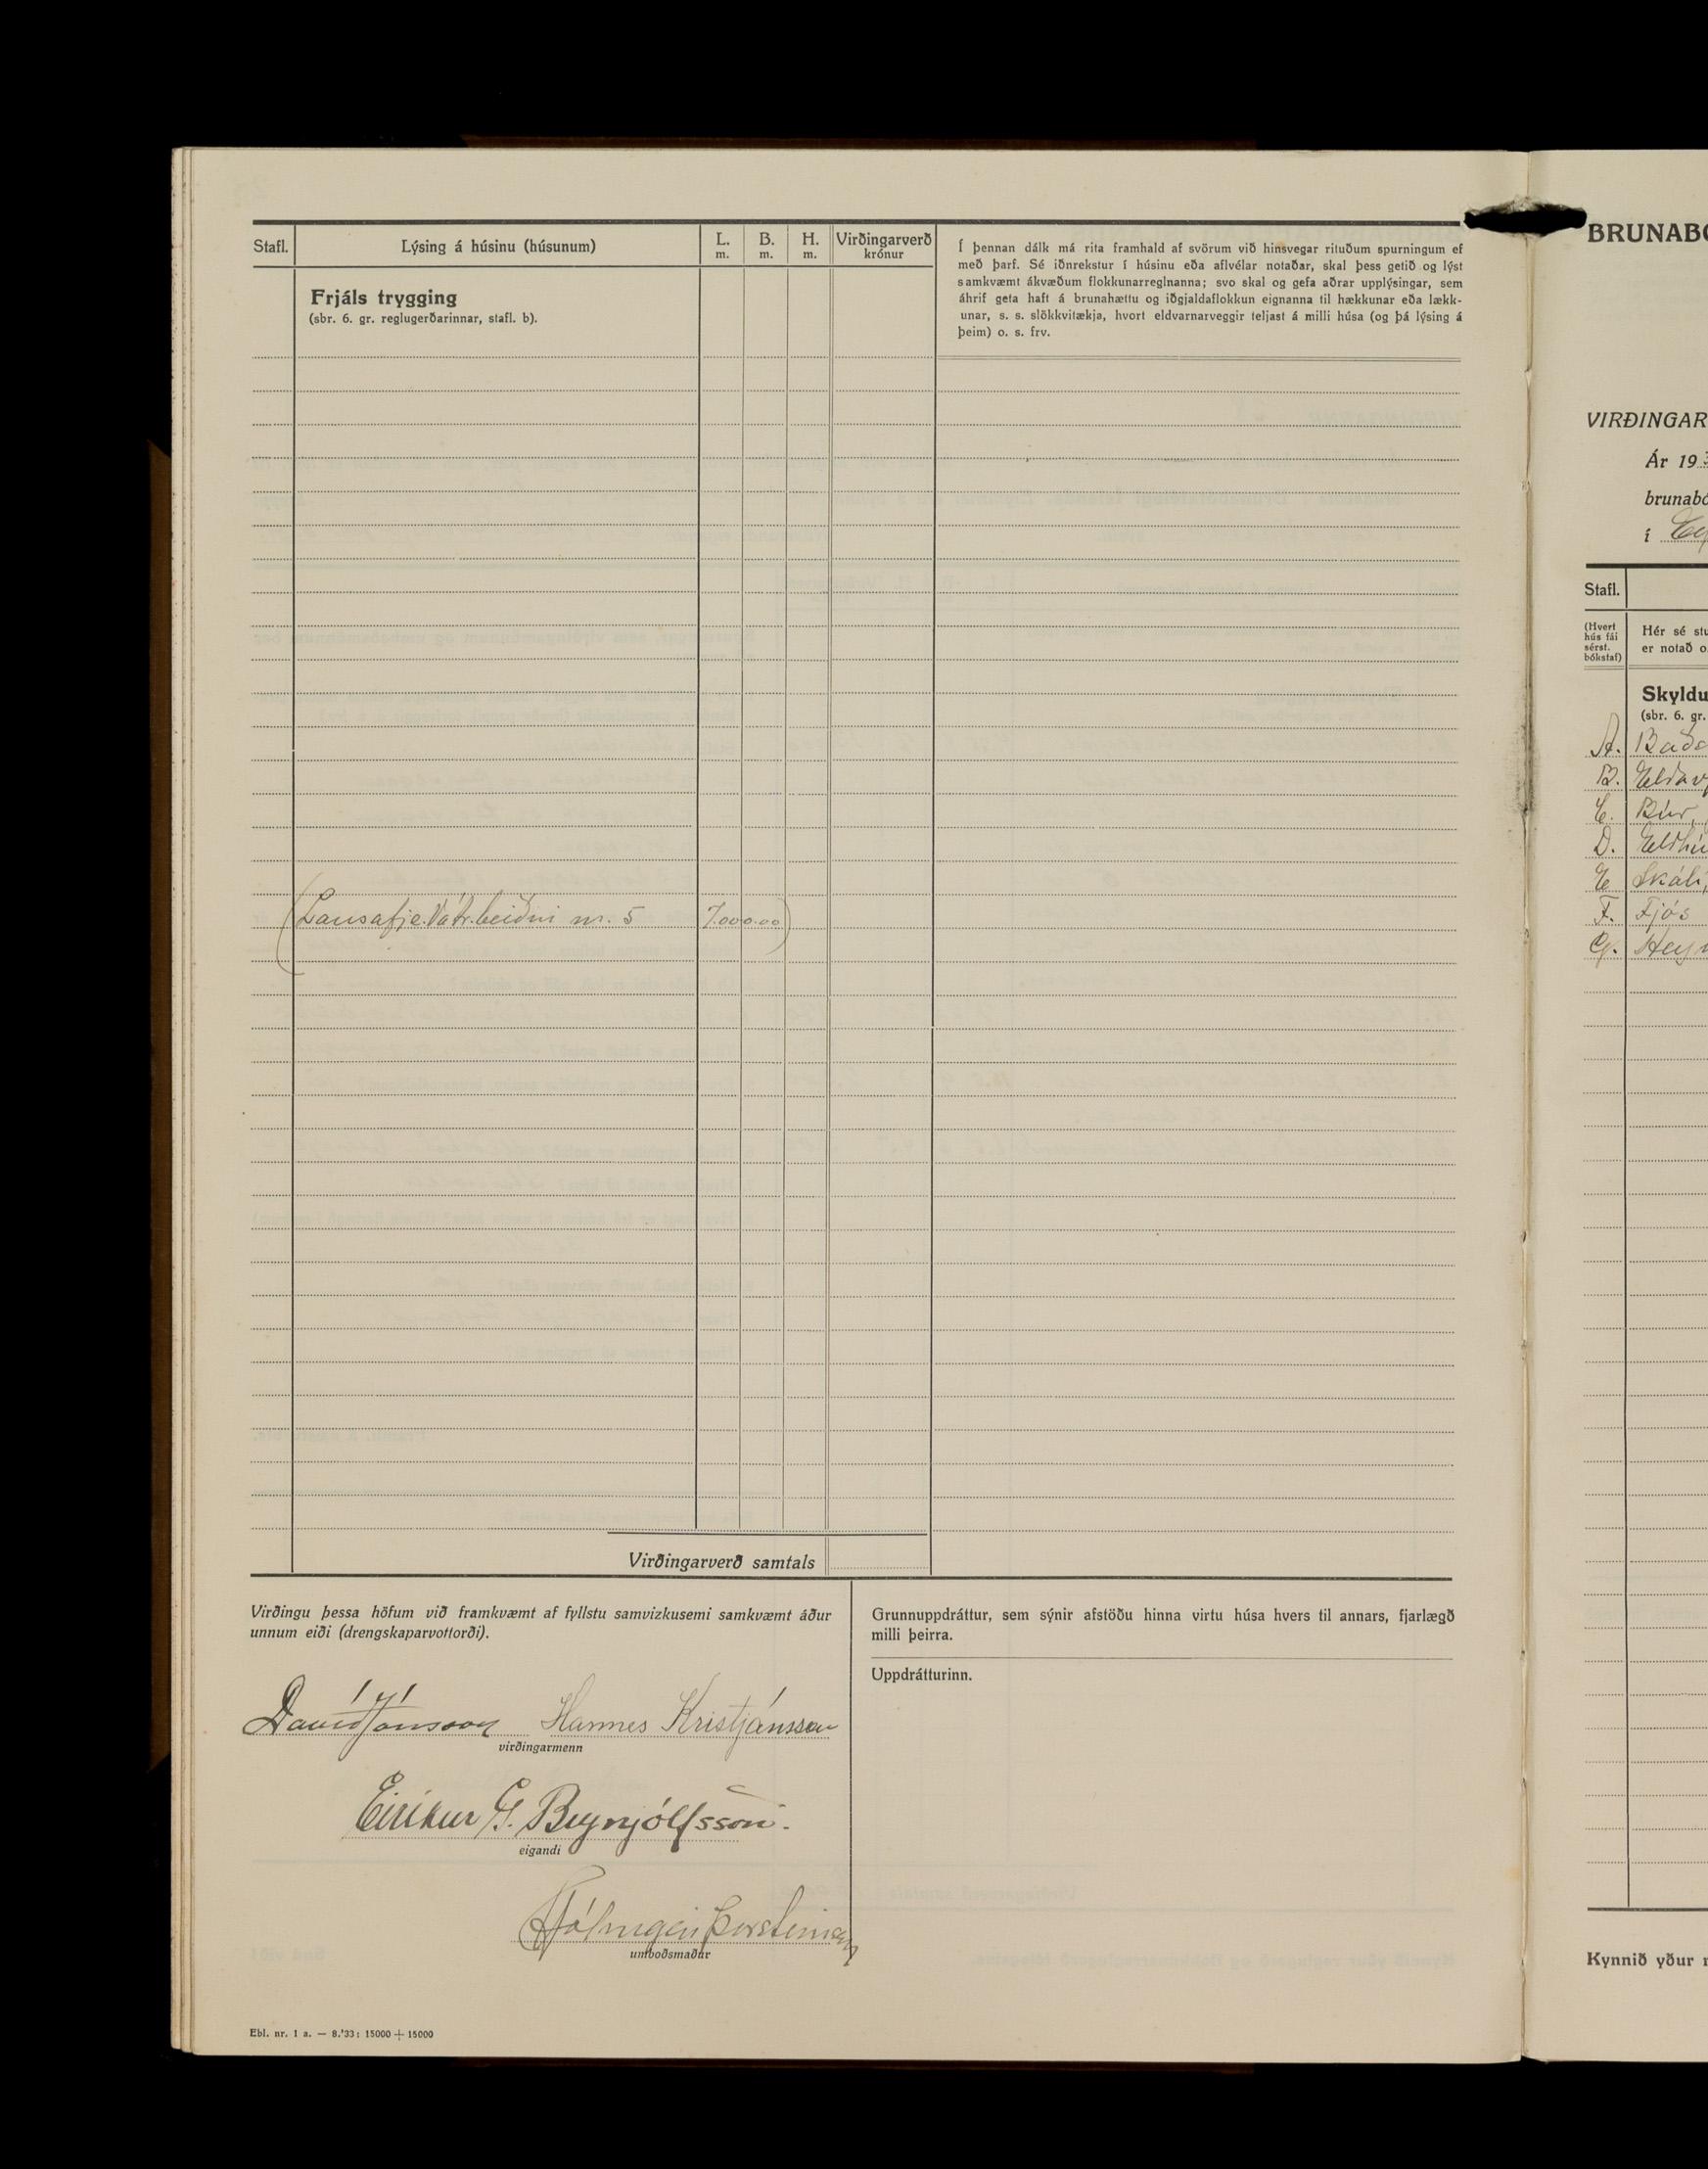 Stafl.
Lýsing á húsinu (húsunum)
L.
m.
B.
m.
H.
m.
Virðingarverð
krónur
Í þennan dálk má rita framhald af svörum við hinsvegar rituðum spurningum ef
með þarf. Sé iðnrekstur í húsinu eða aflvélar notaðar, skal þess getið og lýst
samkvæmt ákvæðum flokkunarreglnanna; svo skal og gefa aðrar upplýsingar, sem
áhrif geta haft á brunahættu og iðgjaldaflokkun eignanna til hækkunar eða lækk-
unar, s. s. slökkvitækja, hvort eldvarnarveggir teljast á milli húsa (og þá lýsing á
þeim) o. s. frv.
Frjáls trygging
(sbr. 6. gr. reglugerðarinnar, stafl. b).
(Lausafje. Vátr.beiðni nr. 5 7.000.00)
Virðingarverð samtals
Virðingu þessa höfum við framkvæmt af fyllstu samvizkusemi samkvæmt áður
unnum eiði (drengskaparvottorði).
Davíð Jónsson Hannes Kristjánsson
virðingarmenn
Eiríkur G. Brynjólfsson.
eigandi
Hólmgeir Þorsteinsson
umboðsmaður
Grunnuppdráttur, sem sýnir afstöðu hinna virtu húsa hvers til annars, fjarlægð
milli þeirra.
Uppdrátturinn.
Ebl. nr. 1 a. — 8.'33: 15000 + 15000
BRUNABO
VIRÐINGAR
Ár 193
brunabó
í Ey
Stafl.
(Hvert
hús fái
sérst.
bókstaf)
Hér sé stu
er notað o
Skyldu
(sbr. 6. gr.
A. Baðs
B. Eldav
C. Búr,
D. Eldhú
E Skáli,
F. Fjós
G. Hey
Kynnið yður r